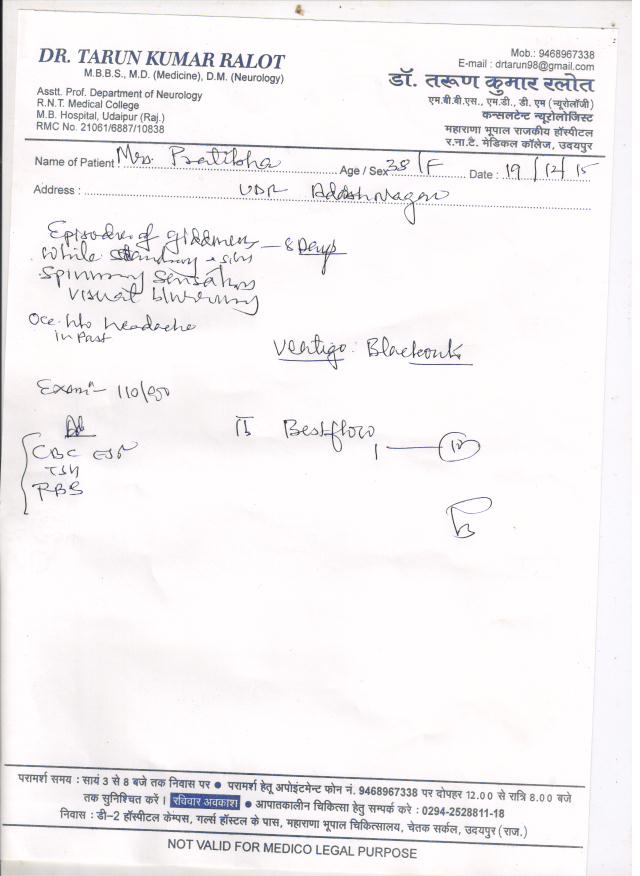 DR. TARUN KUMAR RALOT
M.B.B.S., M.D. (Medicine), D.M. (Neurology)
Asstt. Prof. Department of Neurology
R.N.T. Medical College
M.B. Hospital, Udaipur (Raj.)
RMC No. 21061/6887/10838
Mob.: 9468967338
E-mail : drtarun98@gmail.com
डॉ. तरूण कुमार रलोत
एम.बी.बी.एस., एम.डी., डी. एम (न्यूरोलॉजी)
कन्सलटेन्ट न्यूरोलोजिस्ट
महाराणा भूपाल राजकीय हॉस्पीटल
र.ना.टै. मेडिकल कॉलेज, उदयपुर
Name of Patient : Mrs. Pratibha Age / Sex 38 / F Date : 19 / 12 / 15
Address : UDR Adarsh Nagar
Episodes of giddiness — 8 Days
while standing
Spinning sensation
visual blurring
Occ. h/o headache
in Past
Vertigo. Blackouts
Exam - 110/
CBC ESR
TSH
RBS
Bestflow
1 — 10
परामर्श समय : सायं 3 से 8 बजे तक निवास पर ● परामर्श हेतू अपोइंटमेन्ट फोन नं. 9468967338 पर दोपहर 12.00 से रात्रि 8.00 बजे
तक सुनिश्चित करें। रविवार अवकाश ● आपातकालीन चिकित्सा हेतु सम्पर्क करे : 0294-2528811-18
निवास : डी-2 हॉस्पीटल केम्पस, गर्ल्स हॉस्टल के पास, महाराणा भूपाल चिकित्सालय, चेतक सर्कल, उदयपुर (राज.)
NOT VALID FOR MEDICO LEGAL PURPOSE